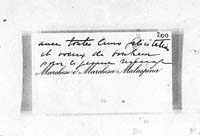 200
avec toutes leurs félicitations
et voeux de bonheur
pour le jeune
Marchese e Marchesa Malaspina